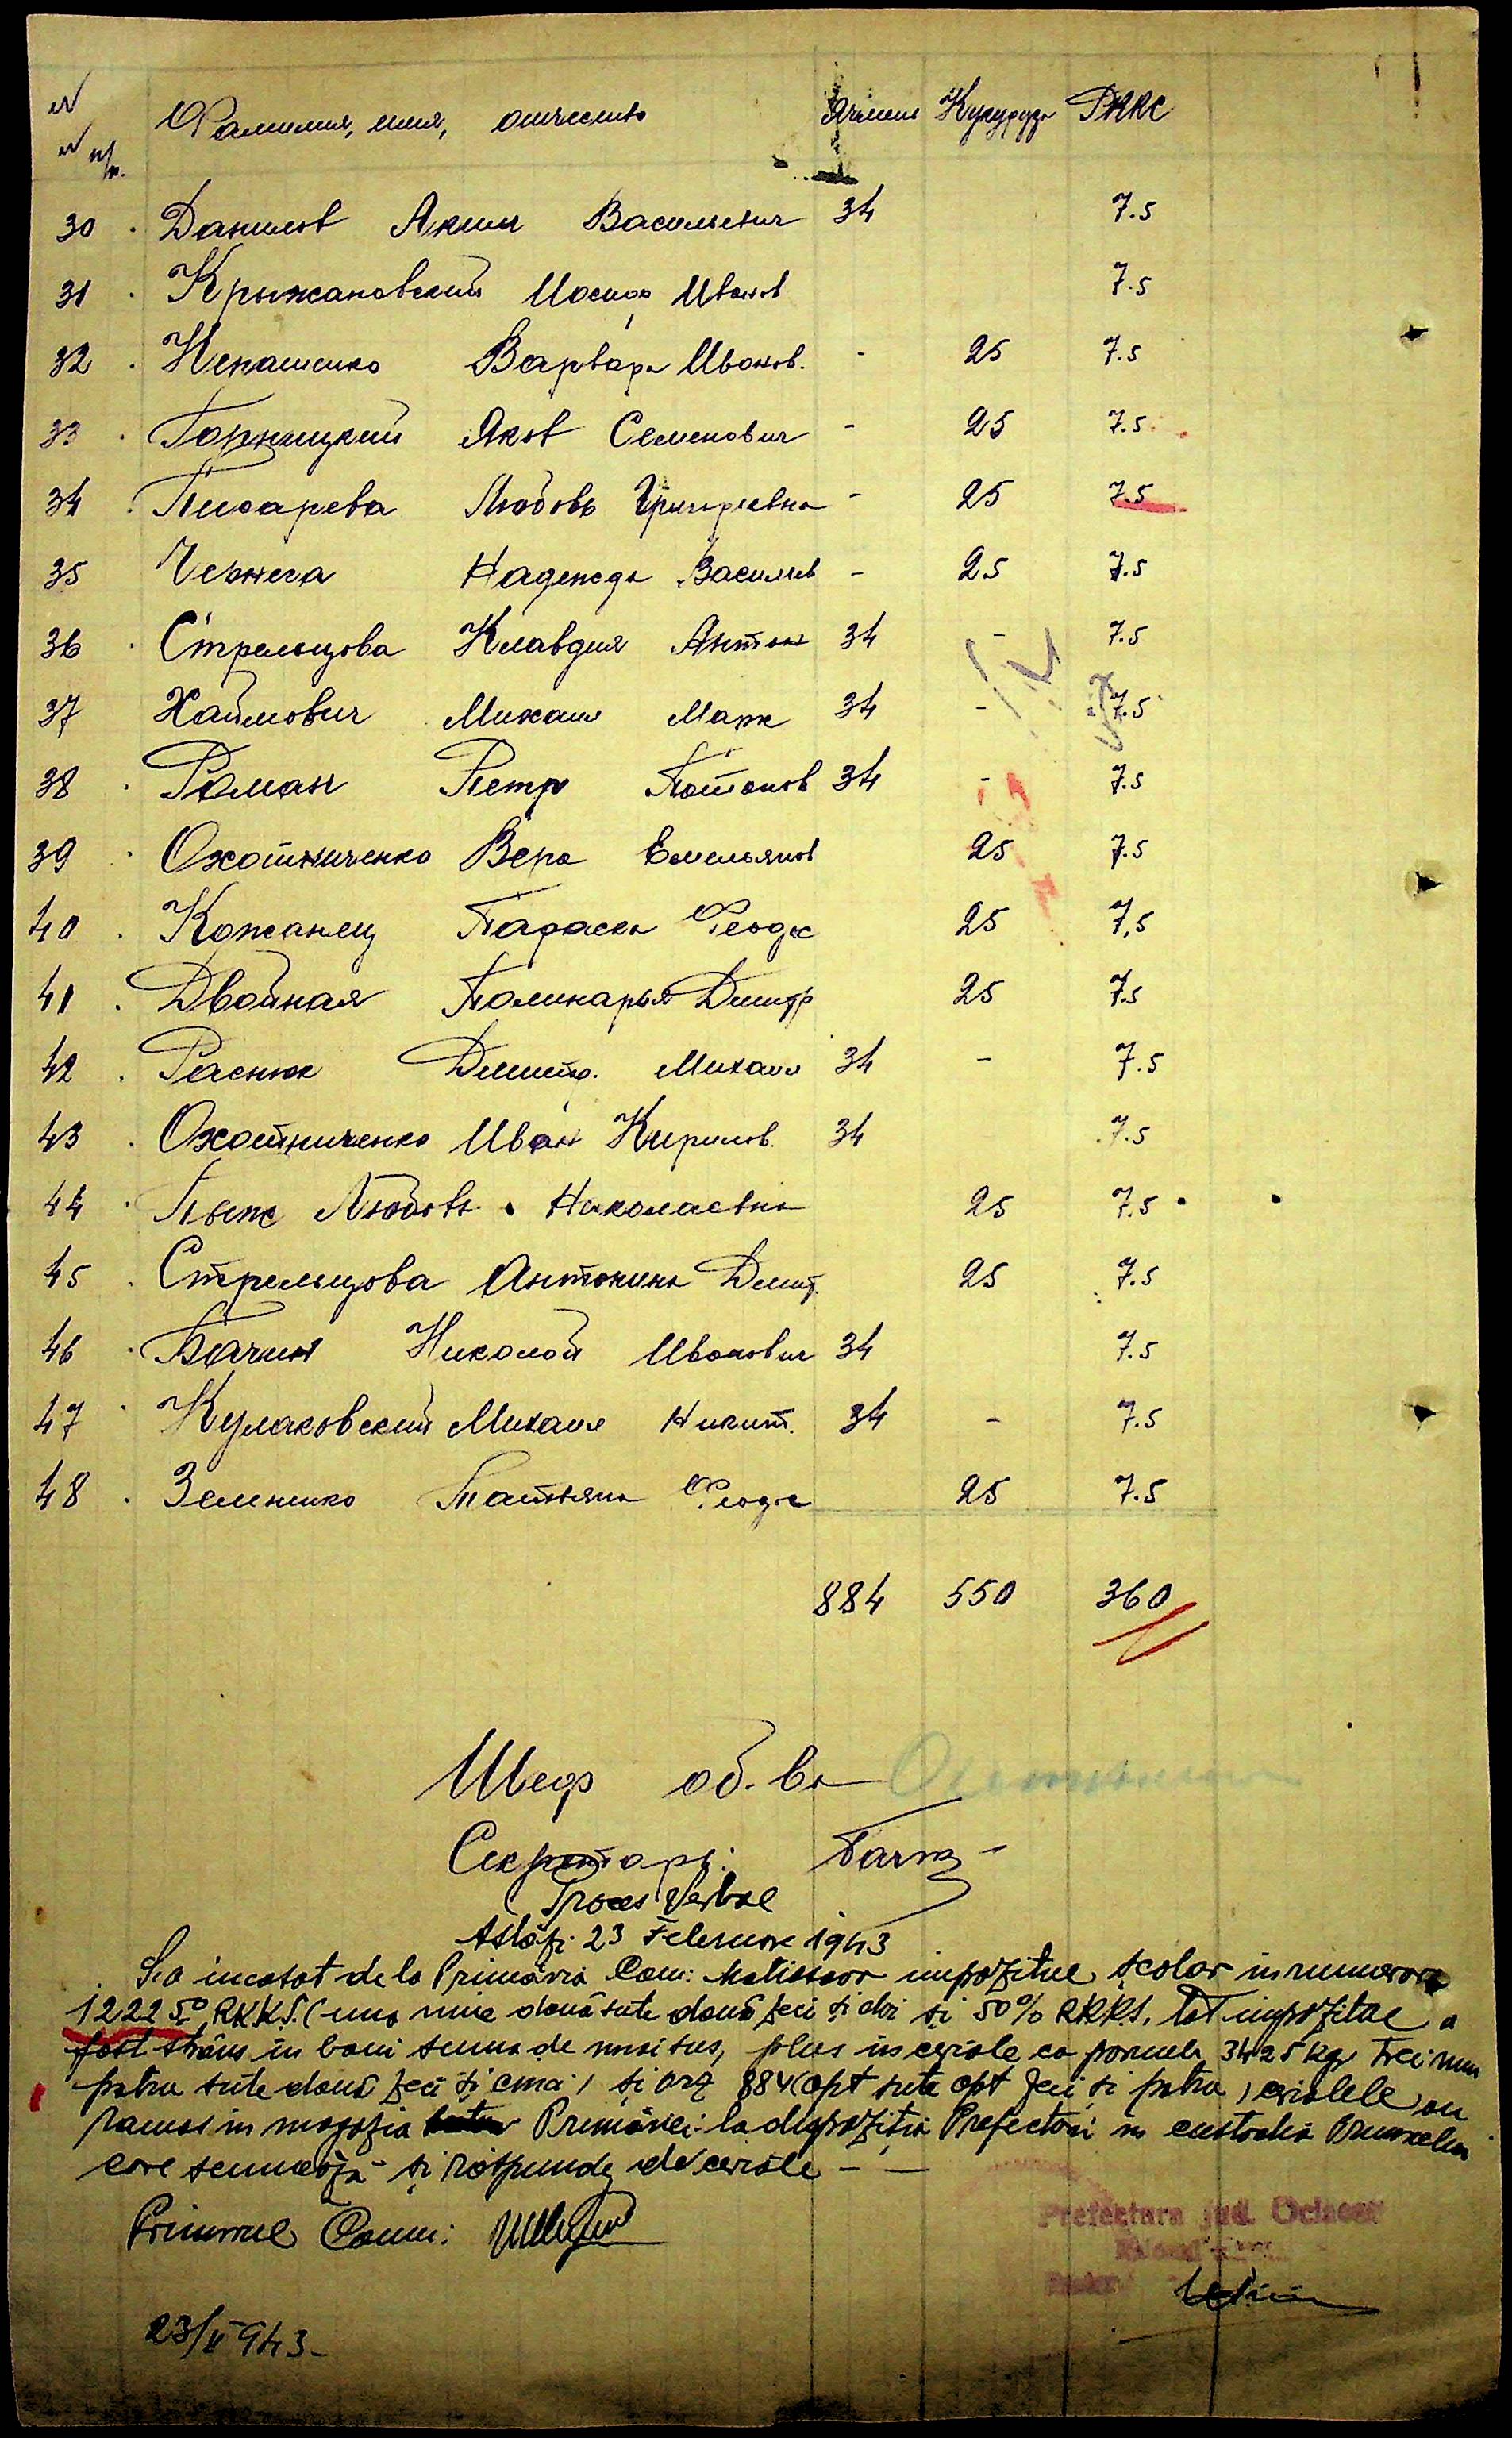 №
№ п/п. Фамилия, имя, отчество Ячмень Кукуруза РККС
30 Данилов Аким Васильевич 34 7.5
31 Крыжановский Иосиф Иванов 7.5
32 Непашенко Варвара Иванов. - 25 7.5
33 Горницкий Яков Семенович - 25 7.5
34 Писарева Любовь Григорьевна - 25 7.5
35 Чернега Надежда Васильев - 25 7.5
36 Стрельцова Клавдия Антон 34 - 7.5
37 Хаймович Михаил Марк 34 - 7.5
38 Роман Петр Потапов 34 - 7.5
39 Охотниченко Вера Емельянов 25 7.5
40 Кожанец Параска Феодос 25 7,5
41 Двойная Полинарья Дмитр 25 7.5
42 Раснюк Дмитр. Михаил 34 - 7.5
43 Охотниченко Иван Кирилов. 34 7.5
44 Пыж Любовь Николаевна 25 7.5
45 Стрельцова Антонина Дмит. 25 7.5
46 Бачин Николай Иванович 34 7.5
47 Кулаковский Михаил Никит. 34 - 7.5
48 Зеленко Татьяна Феодос 25 7.5
884 550 360
Шеф об-ва
Секретарь:
Proces Verbal
Astăzi 23 Februare 1943
S-a incasat de la Primăria Com: impozitul școlar in numerar
1222 50 RKKS. (una mie două sute două zeci și doi și 50% RKKS. Tot impozitul a
fost strâns in bani suma de mai sus, plus in ceriale ca porumb 3425 kg trei mii
patru sute două zeci și cinci) și orz 884 (opt sute opt zeci și patru) cerialele au
ramas in magazia Primăriei la dispoziția Prefecturii in custodia Primarelui
care semnează și răspunde de ceriale - —
Primarul Comu:
Prefectura jud. Oceacov
23/II 943-